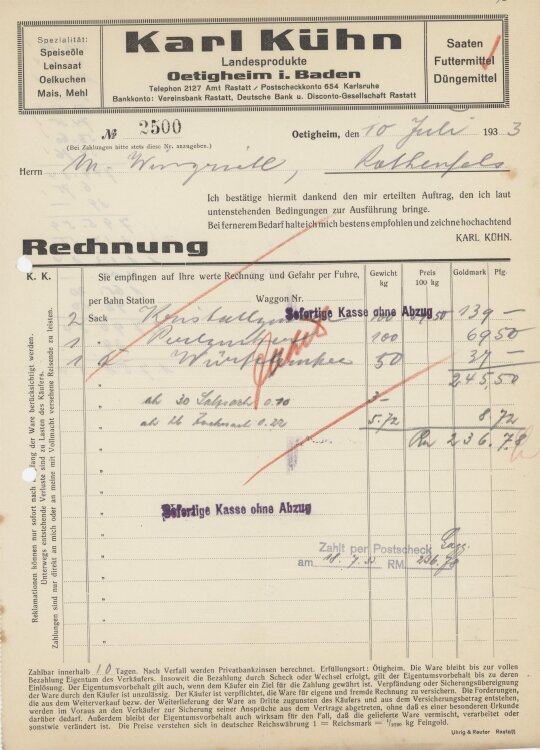 Spezialität:
Speiseöle
Leinsaat
Oelkuchen
Mais, Mehl
Karl Kühn
Landesprodukte
Oetigheim i. Baden
Telephon 2127 Amt Rastatt / Postscheckkonto 654 Karlsruhe
Bankkonto: Vereinsbank Rastatt, Deutsche Bank u. Disconto-Gesellschaft Rastatt
Saaten
Futtermittel
Düngemittel
№ 2500
(Bei Zahlungen bitte stets diese Nr. anzugeben.)
Oetigheim, den 10 Juli 1933
Herrn Rothenfels
Ich bestätige hiermit dankend den mir erteilten Auftrag, den ich laut
untenstehenden Bedingungen zur Ausführung bringe.
Bei fernerem Bedarf halte ich mich bestens empfohlen und zeichne hochachtend
KARL KÜHN.
Rechnung
K. K.
Sie empfingen auf Ihre werte Rechnung und Gefahr per Fuhre,
per Bahn Station Waggon Nr.
Gewicht kg
Preis 100 kg
Goldmark
Pfg.
Sofortige Kasse ohne Abzug
2 Sack 139 –
1 " 100 69 50
1 50 37 –
245,50
ab 30 0.10 3–
ab 26 0.22 5.72 8,72
Rm 236.78
Sofortige Kasse ohne Abzug
Zahlt per Postscheck
am 18.7.33 RM. 236.78
Reklamationen können nur sofort nach Empfang der Ware berücksichtigt werden.
Unterwegs entstehende Verluste sind zu Lasten des Käufers.
Zahlungen sind nur direkt an mich oder an meine mit Vollmacht versehene Reisende zu leisten.
Zahlbar innerhalb 10 Tagen. Nach Verfall werden Privatbankzinsen berechnet. Erfüllungsort: Ötigheim. Die Ware bleibt bis zur vollen
Bezahlung Eigentum des Verkäufers. Insoweit die Bezahlung durch Scheck oder Wechsel erfolgt, gilt der Eigentumsvorbehalt bis zu deren
Einlösung. Der Eigentumsvorbehalt gilt auch, wenn dem Käufer ein Ziel für die Zahlung gewährt ist. Verpfändung oder Sicherungsübereignung
der Ware durch den Käufer ist unzulässig. Der Käufer ist verpflichtet, die Ware für eigene und fremde Rechnung zu versichern. Die Forderungen,
die aus dem Weiterverkauf bezw. der Weiterlieferung der Ware an Dritte zugunsten des Käufers und aus dem Versicherungsbetrag entstehen,
werden im Voraus an den Verkäufer zur Sicherung seiner Ansprüche aus dem Vertrage abgetreten, ohne daß es einer besonderen Urkunde
darüber bedarf. Außerdem bleibt der Eigentumsvorbehalt auch wirksam für den Fall, daß die gelieferte Ware vermischt, verarbeitet oder
sonstwie verändert ist. Die Preise verstehen sich in deutscher Reichswährung 1 = Reichsmark = 1/2790 kg Feingold.
Uhrig & Reuter Rastatt